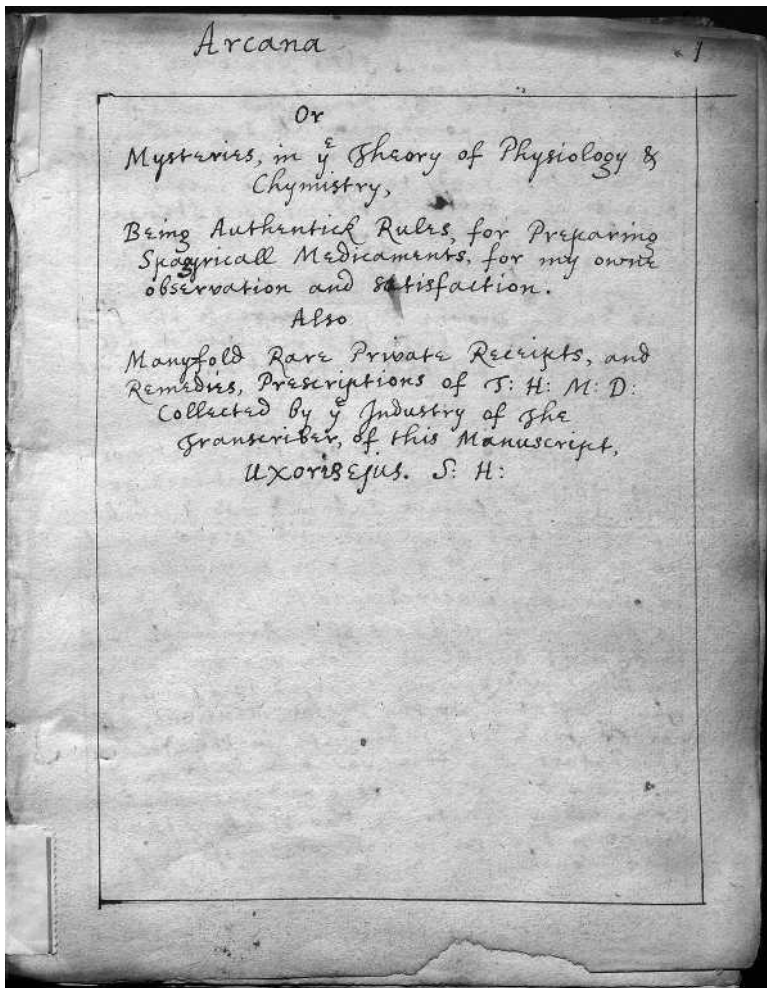 Arcana
1
Or
Mysteries, in yᵉ Theory of Physiology &
Chymistry,
Being Authentick Rules, for Preparing
Spagyricall Medicaments, for my owne
observation and satisfaction.
Also
Manyfold Rare Private Receipts, and
Remedies, Prescriptions of T: H: M: D:
Collected by yᵉ Industry of The
Transcriber, of this Manuscript,
Uxorisejus. S: H: